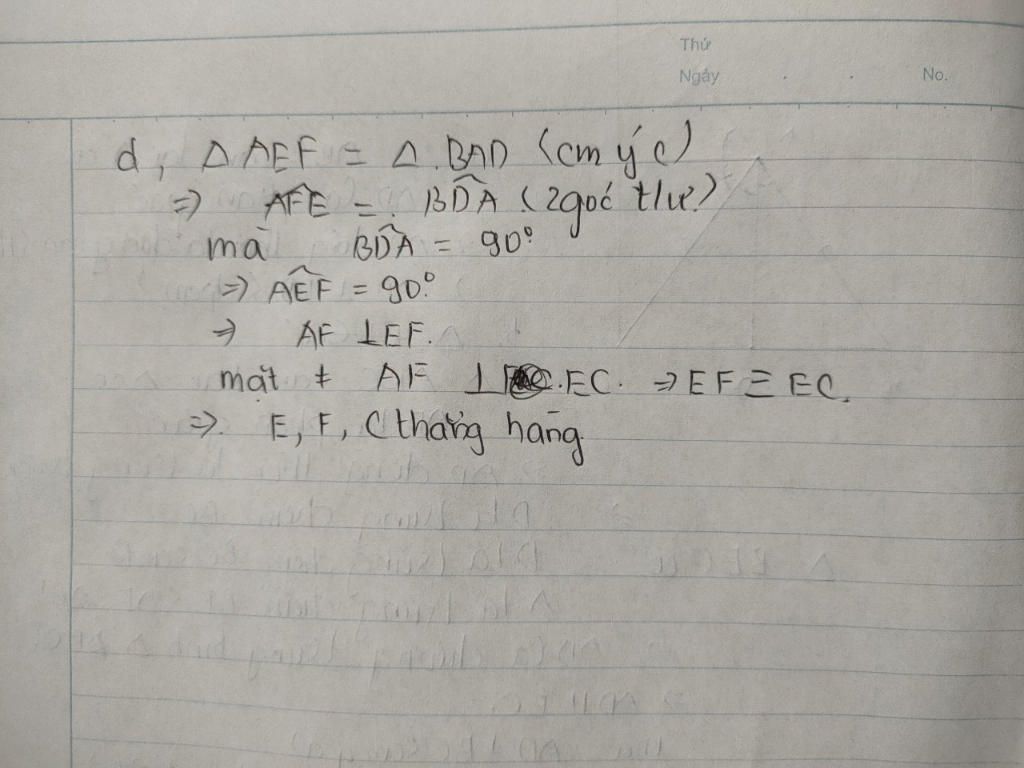 Thứ
Ngày . . No.
d, △ AEF = △.BAD (cm ý c)
=> AFE = . BDA (2 góc t/ư)
mà BDA = 90°
=> AEF = 90°.
=> AF ⊥ EF.
mặt ≠ AF ⊥ .EC. => EF ≡ EC.
=> E, F, C thẳng hàng